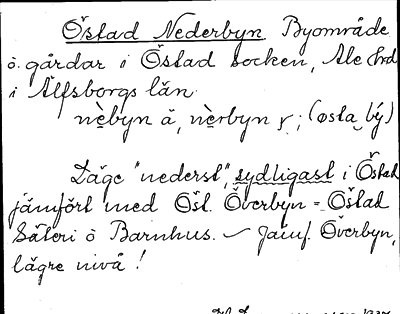 Östad Nederbyn Byområde
o. gårdar i Östad socken, Ale hrd
i Älfsborgs län.
nèbyn ä, nèrbyn y; (østa bý)
Läge "nederst", sydligast i Östad
jämfört med Öst. Överbyn = Östad
Säteri o Barnhus. – Jämf. Överbyn,
lägre nivå!